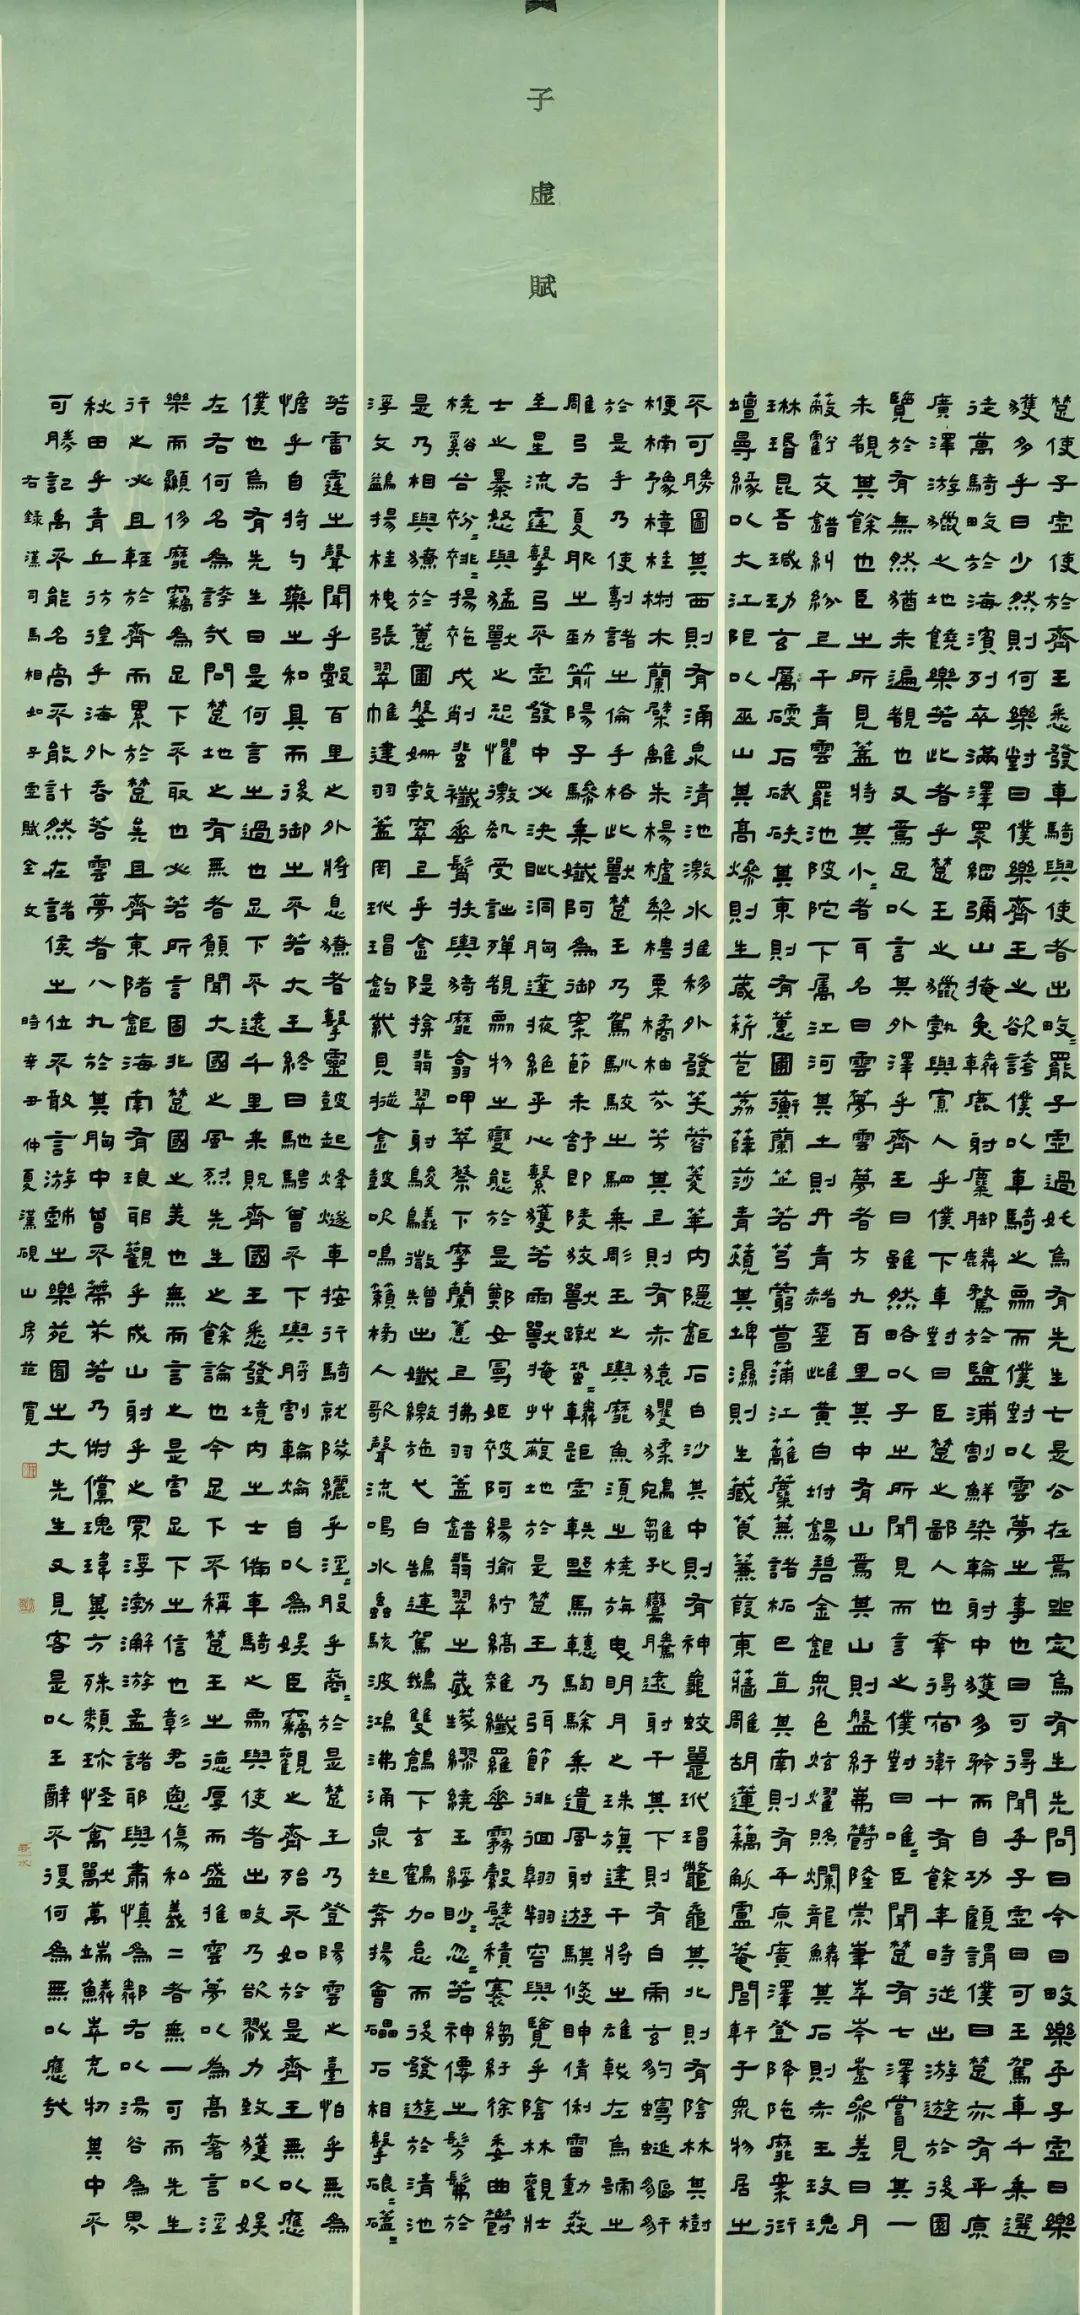 子虛賦
楚使子虛使於齊王悉發車騎與使者出畋=罷子虛過奼烏有先生亡是公在焉坐定烏有生先問曰今日畋樂乎子虛曰樂
獲多乎曰少然則何樂對曰僕樂齊王之欲誇僕以車騎之眾而僕對以雲夢之事也曰可得聞乎子虛曰可王駕車千乘選
徒萬騎畋於海濱列卒滿澤罘網彌山掩兔轔鹿射麋脚麟騖於鹽浦割鮮染輪射中獲多矜而自功顧謂僕曰楚亦有平原
廣澤游獵之地饒樂若此者乎楚王之獵孰與寡人乎僕下車對曰臣楚之鄙人也幸得宿衛十有餘年時從出游遊於後園
覽於有無然猶未遍覩也又焉足以言其外澤乎齊王曰雖然略以子之所聞見而言之僕對曰唯=臣聞楚有七澤嘗見其一
未覩其餘也臣之所見蓋特其小=者耳名曰雲夢雲夢者方九百里其中有山焉其山則盤紆茀鬱隆崇嵂崒岑崟參差日月
蔽虧交錯糾紛上干青雲罷池陂陀下屬江河其土則丹青赭堊雌黃白坿錫碧金銀眾色炫燿照爛龍鱗其石則赤玉玫瑰
琳瑉昆吾瑊玏玄厲碝石碔砆其東則有蕙圃蘅蘭芷若芎藭菖蒲江蘺蘪蕪諸柘巴苴其南則有平原廣澤登降陁靡案衍
壇曼緣以大江限以巫山其高燥則生葴菥苞荔薛莎青薠其埤濕則生藏莨蒹葭東蘠雕胡蓮藕觚盧菴閭軒于眾物居之
不可勝圖其西則有涌泉清池激水推移外發芙蓉菱華內隱鉅石白沙其中則有神龜蛟鼉玳瑁鼈黿其北則有陰林其樹
楩楠豫樟桂樹木蘭檗離朱楊樝梨梬栗橘柚芬芳其上則有赤猿玃猱鵷雛孔鸞騰遠射干其下則有白虎玄豹蟃蜒貙犴
於是乎乃使剸諸之倫手格此獸楚王乃駕馴駮之駟乘彫玉之輿靡魚須之橈旃曳明月之珠旗建干將之雄戟左烏號之
雕弓右夏服之勁箭陽子驂乘孅阿為御案節未舒即陵狡獸蹴蛩=轔距虛軼野馬轊駒駼乘遺風射遊騏倏眒倩浰雷動猋
至星流霆擊弓不虛發中必決眦洞胸達掖絕乎心繫獲若雨獸掩艸蔽地於是楚王乃弭節徘徊翱翔容與覽乎陰林觀壯
士之暴怒與猛獸之恐懼徼郤受詘殫覩眾物之變態於是鄭女曼姬被阿緆揄紵縞雜纖羅垂霧縠襞積褰縐紆徐委曲鬱
橈谿谷衯=裶=揚袘戌削蜚襳垂髾扶輿猗靡翕呷萃蔡下摩蘭蕙上拂羽蓋錯翡翠之葳蕤繆繞玉綏眇=忽=若神僊之髣髴於
是乃相與獠於蕙圃媻姍勃窣上乎金隄揜翡翠射鵔鸃微矰出孅繳施弋白鵠連駕鵝雙鶬下玄鶴加怠而後發遊於清池
浮文鷁揚桂枻張翠帷建羽蓋罔玳瑁釣紫貝摐金鼓吹鳴籟榜人歌聲流喝水蟲駭波鴻沸涌泉起奔揚會礧石相擊硠=礚=
若雷霆之聲聞乎數百里之外將息獠者擊靈鼓起烽燧車按行騎就隊纚乎淫=般乎裔=於是楚王乃登陽雲之臺怕乎無為
憺乎自持勺藥之和具而後御之不若大王終日馳騁曾不下輿脟割輪焠自以為娛臣竊觀之齊殆不如於是齊王無以應
僕也烏有先生曰是何言之過也足下不遠千里來貺齊國王悉發境內之士備車騎之眾與使者出畋乃欲戮力致獲以娛
左右何名為誇哉問楚地之有無者願聞大國之風烈先生之餘論也今足下不稱楚王之德厚而盛推雲夢以為高奢言淫
樂而顯侈靡竊為足下不取也必若所言固非楚國之美也無而言之是害足下之信也彰君惡傷私義二者無一可而先生
行之必且輕於齊而累於楚矣且齊東陼鉅海南有琅耶觀乎成山射乎之罘浮渤澥游孟諸耶與肅慎為鄰右以湯谷為界
秋田乎青丘彷徨乎海外吞若雲夢者八九於其胸中曾不蔕芥若乃俶儻瑰瑋異方殊類珍怪鳥獸萬端鱗崒充物其中不
可勝記禹不能名卨不能計然在諸侯之位不敢言游戲之樂苑囿之大先生又見客是以王辭不復何為無以應哉
右錄漢司馬相如子虛賦全文時辛丑仲夏漢硯山房范寬